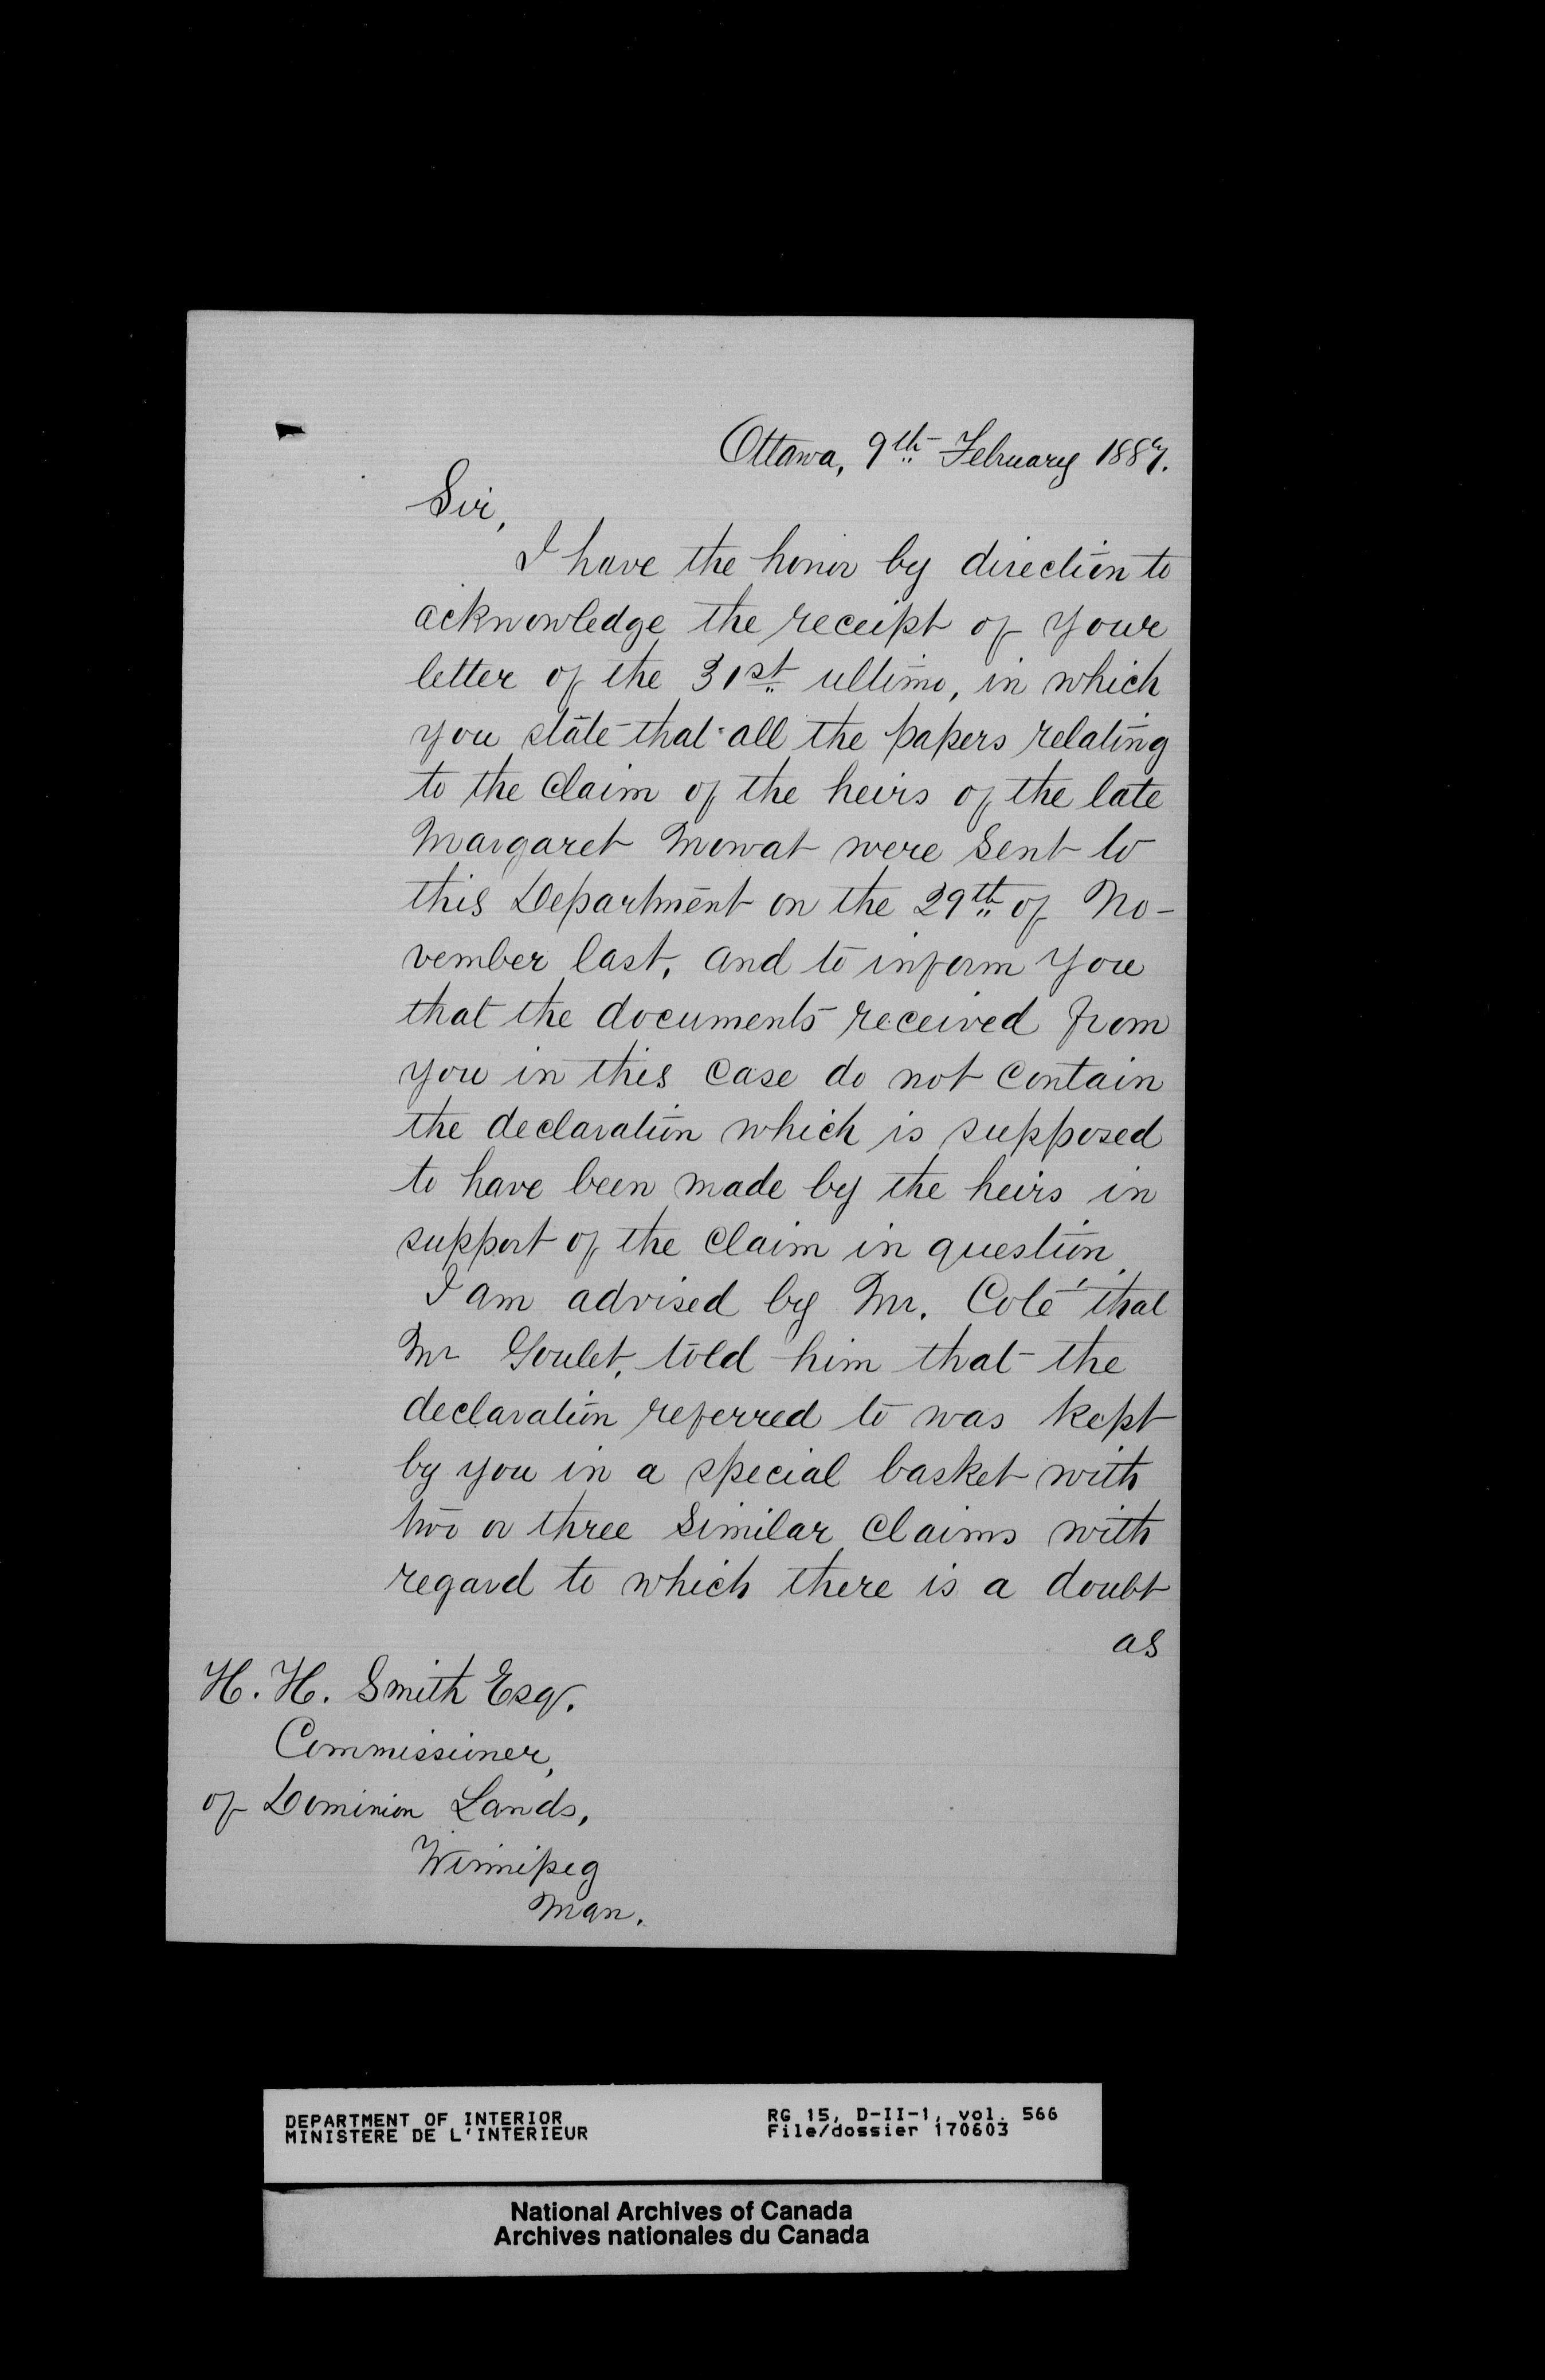 Ottawa, 9th February 1887.
Sir,
I have the honor by direction to
acknowledge the receipt of your
letter of the 31st ultimo, in which
you state that all the papers relating
to the claim of the heirs of the late
Margaret Mowat were sent to
this Department on the 29th of No-
vember last, and to inform you
that the documents received from
you in this case do not contain
the declaration which is supposed
to have been made by the heirs in
support of the claim in question.
I am advised by Mr. Coté that
Mr Goulet, told him that the
declaration referred to was kept
by you in a special basket with
two or three similar claims with
regard to which there is a doubt
as
H. H. Smith Esq.
Commissioner,
of Dominion Lands,
Winnipeg
Man.
DEPARTMENT OF INTERIOR RG 15, D-II-1, vol. 566
MINISTERE DE L'INTERIEUR File/dossier 170603
National Archives of Canada
Archives nationales du Canada